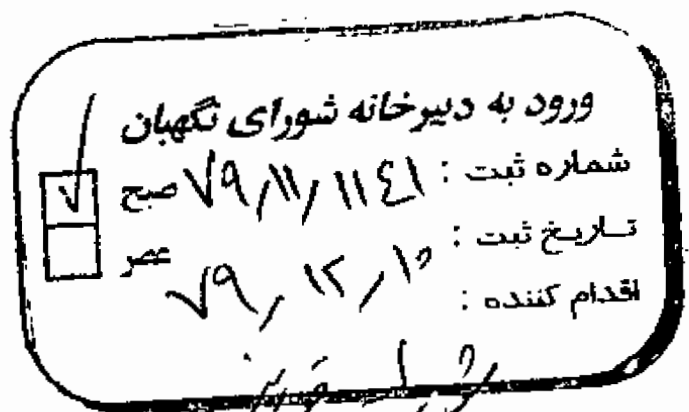 ورود به دبیرخانه شورای نگهبان
شماره ثبت : ۷۹/۱۱/۱۱۴۱ صبح
تاریخ ثبت : ۷۹/۱۲/۱۰ عصر
اقدام کننده :